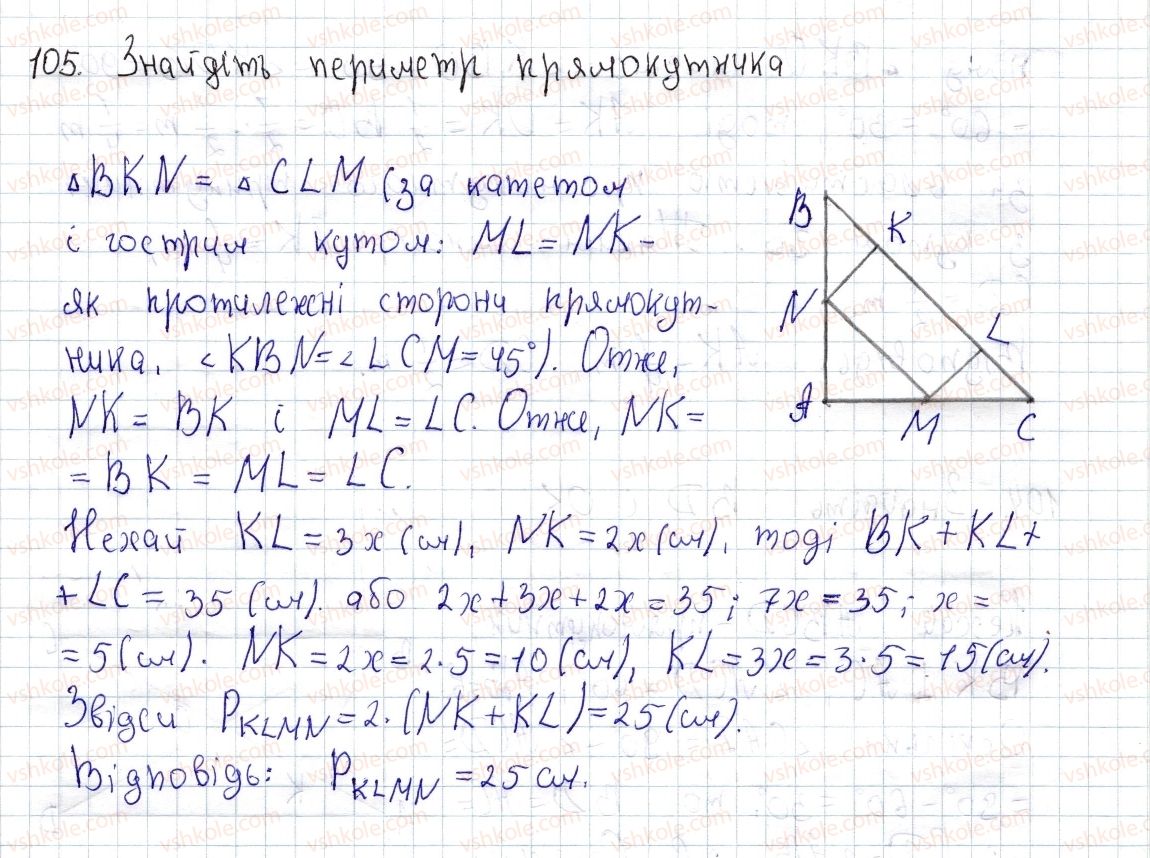 105. Знайдіть периметр прямокутника
△BKN = △CLM (за катетом
і гострим кутом: ML = NK –
як протилежні сторони прямокут-
ника, ∠KBN = ∠LCM = 45°). Отже,
NK = BK і ML = LC. Отже, NK =
= BK = ML = LC.
Нехай KL = 3x (см), NK = 2x (см), тоді BK + KL +
+ LC = 35 (см). або 2x + 3x + 2x = 35; 7x = 35; x =
= 5 (см). NK = 2x = 2·5 = 10 (см), KL = 3x = 3·5 = 15 (см).
Звідси P_KLMN = 2·(NK + KL) = 25 (см).
Відповідь: P_KLMN = 25 см.
B
K
N
L
A
M
C
vshkole.com